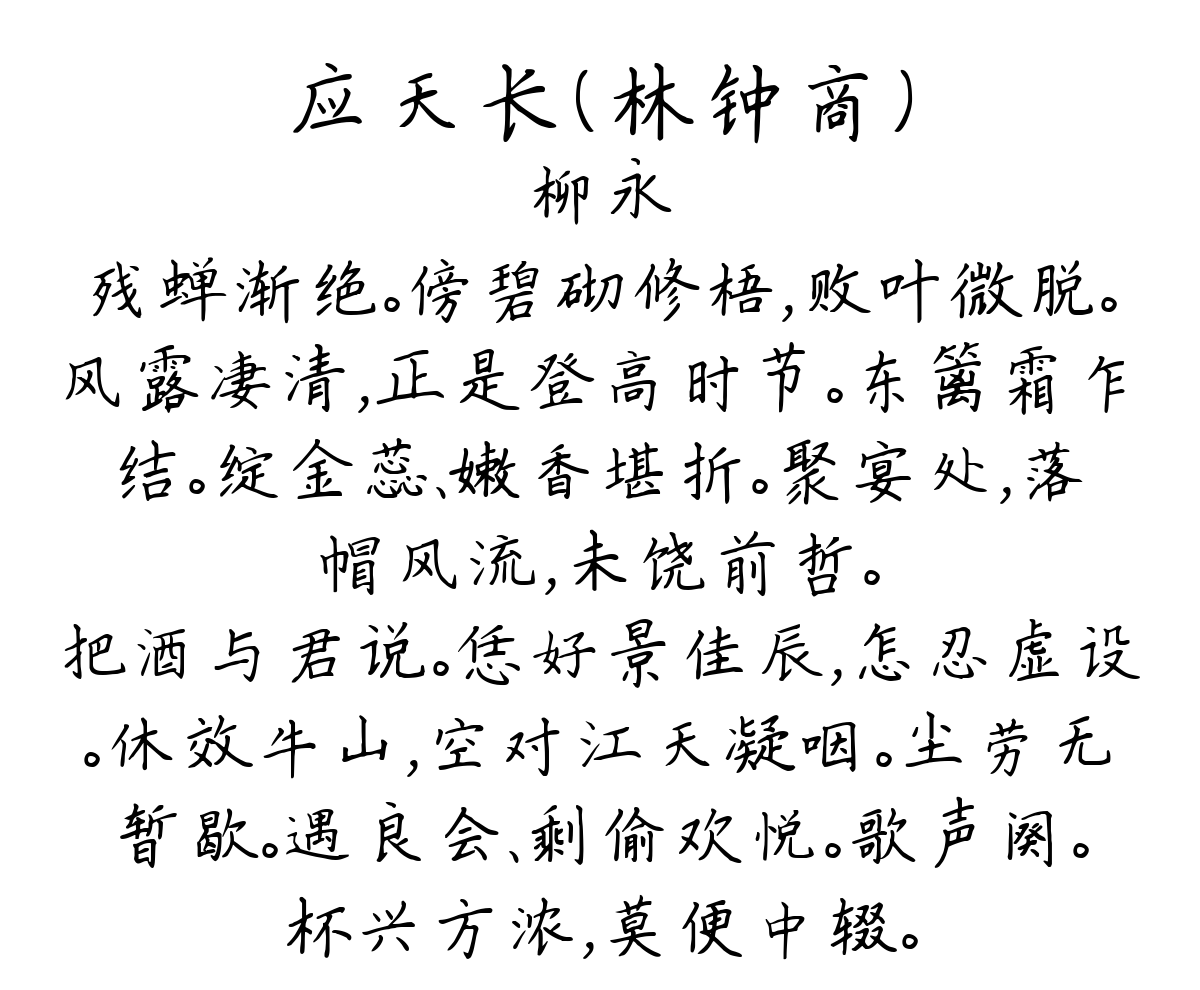 应天长(林钟商)
柳永
残蝉渐绝。傍碧砌修梧,败叶微脱。
风露凄清,正是登高时节。东篱霜乍
结。绽金蕊、嫩香堪折。聚宴处,落
帽风流,未饶前哲。
把酒与君说。恁好景佳辰,怎忍虚设
。休效牛山,空对江天凝咽。尘劳无
暂歇。遇良会、剩偷欢悦。歌声阕。
杯兴方浓,莫便中辍。